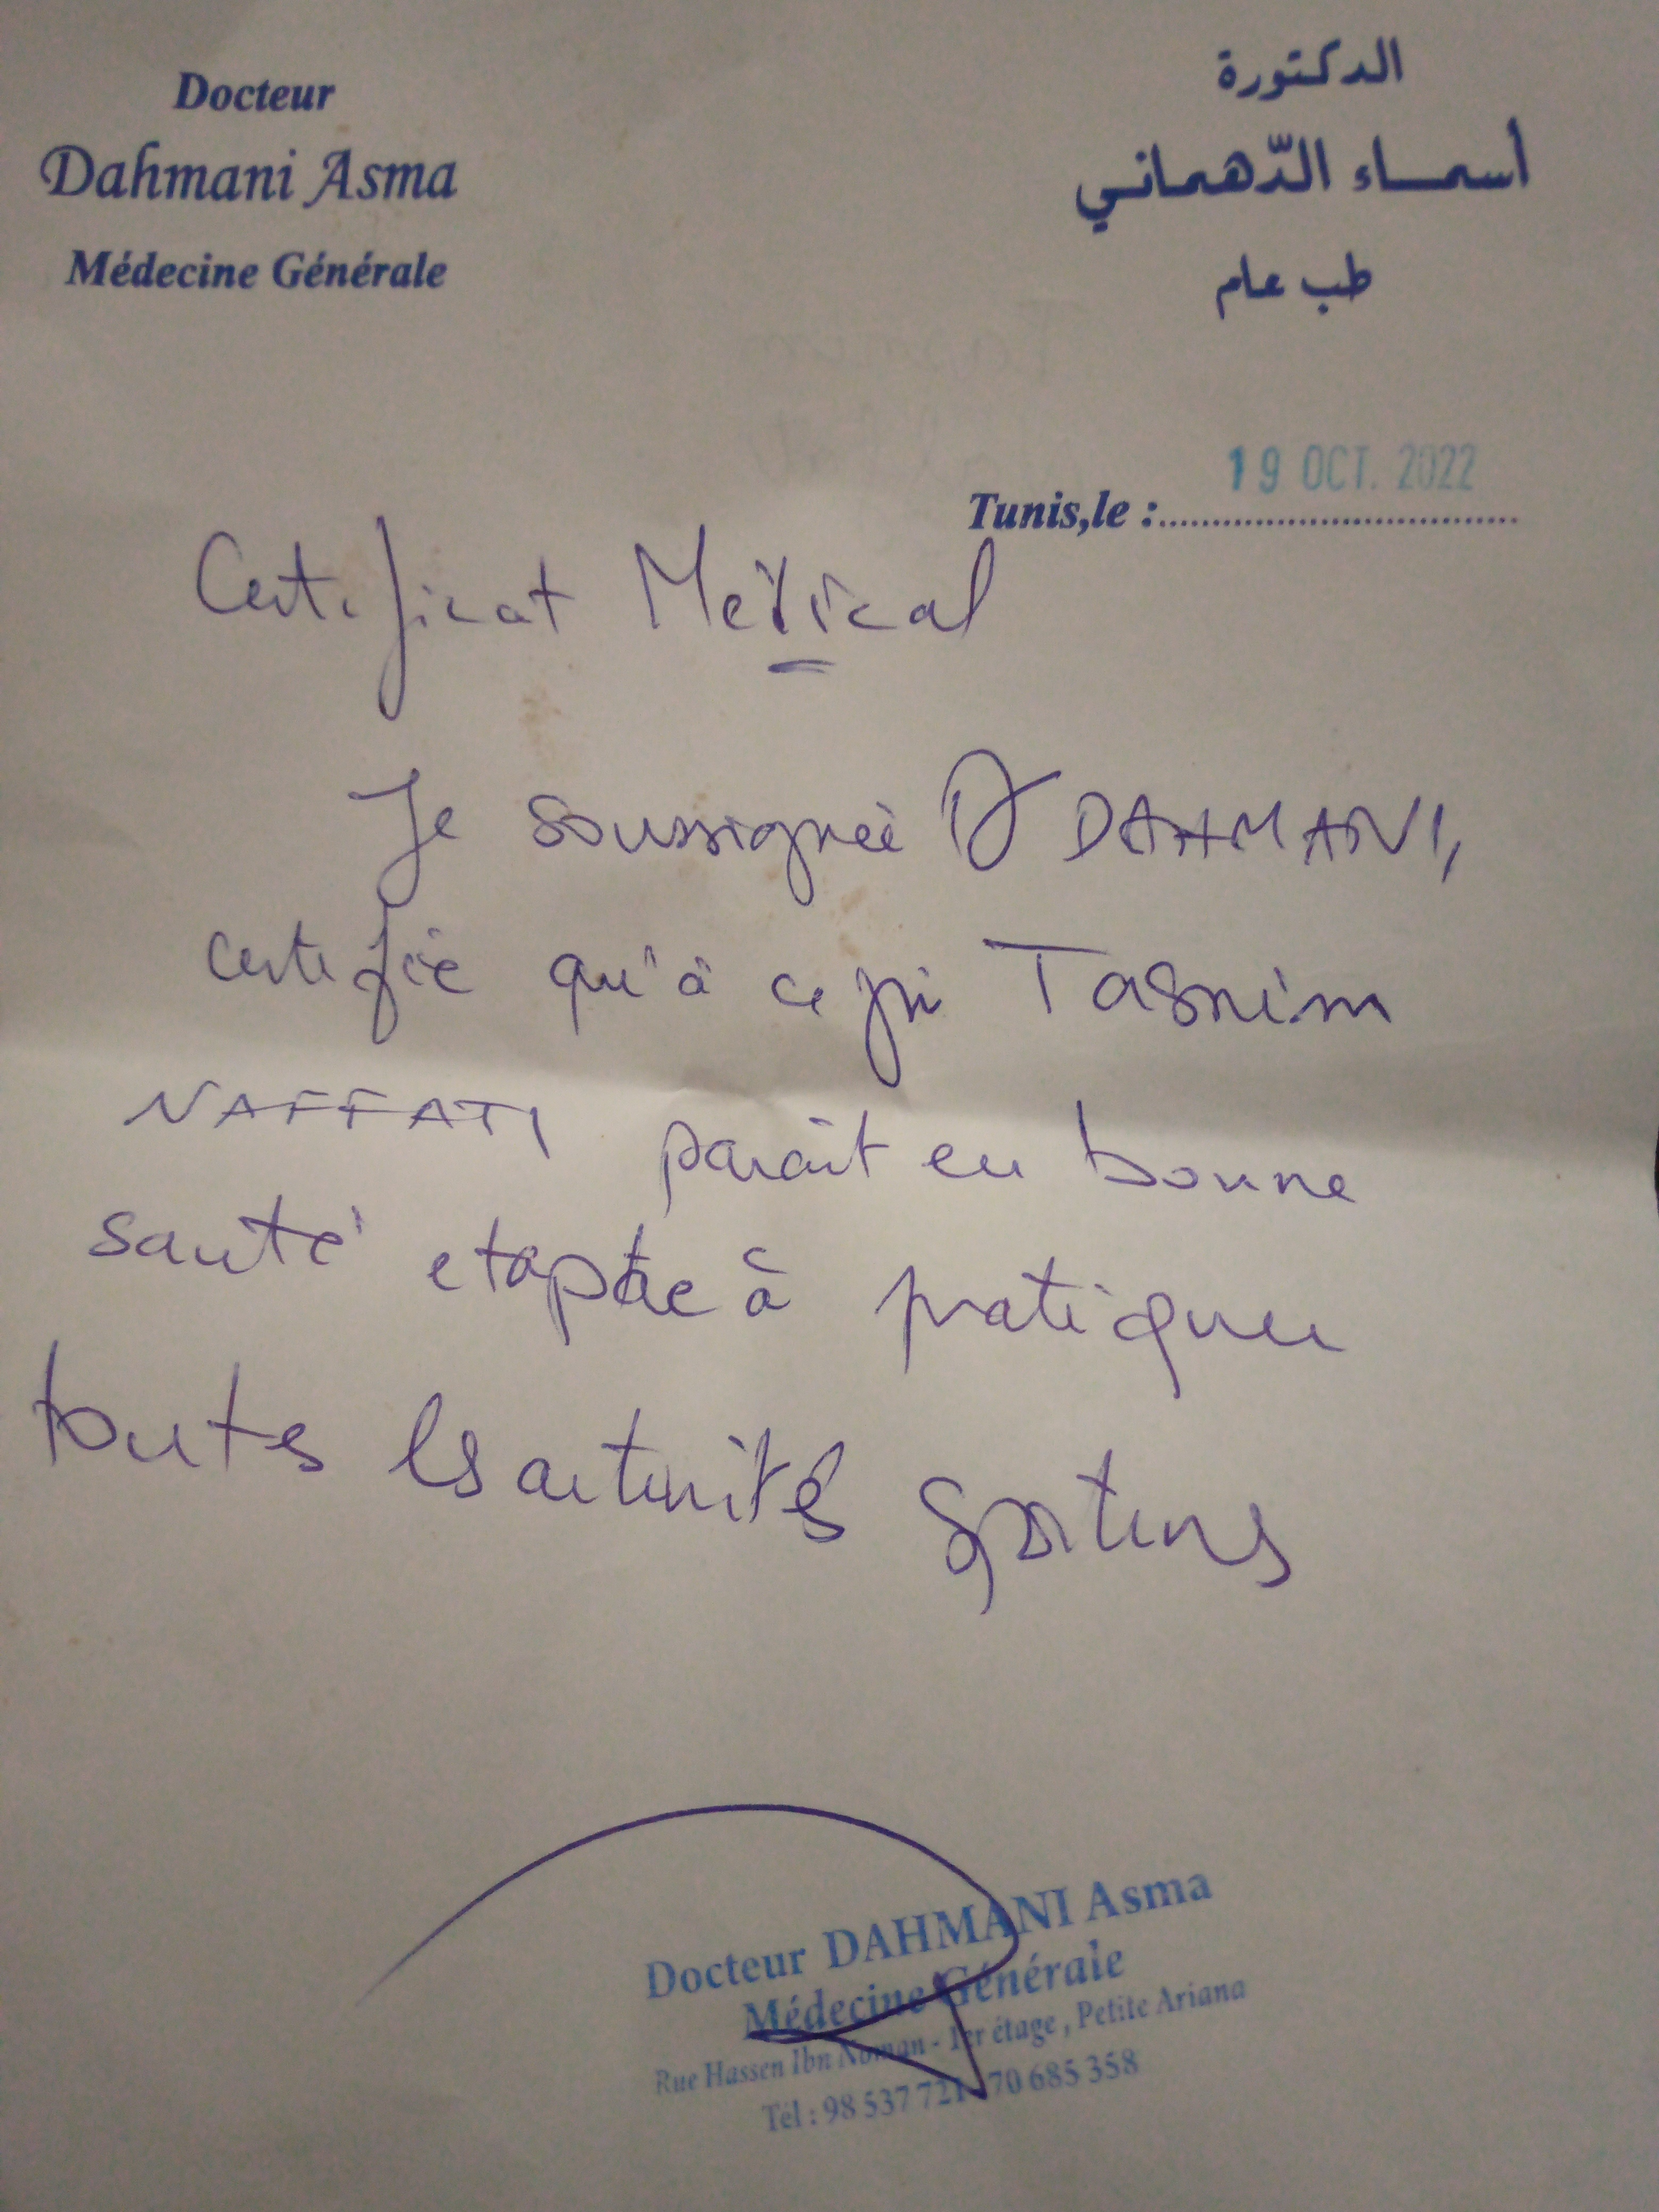 Docteur
Dahmani Asma
Médecine Générale
الدكتورة
أسماء الدّهماني
طب عام
19 OCT. 2022
Tunis,le :
Certificat Médical
Je soussignée Dr DAHMANI,
certifie qu'à ce jr Tasnim
NAFFATI parait en bonne
santé et apte à pratiquer
toutes les activités sportives
Docteur DAHMANI Asma
Médecine Générale
Rue Hassen Ibn Noman - 1er étage, Petite Ariana
Tél : 98 537 721 70 685 358